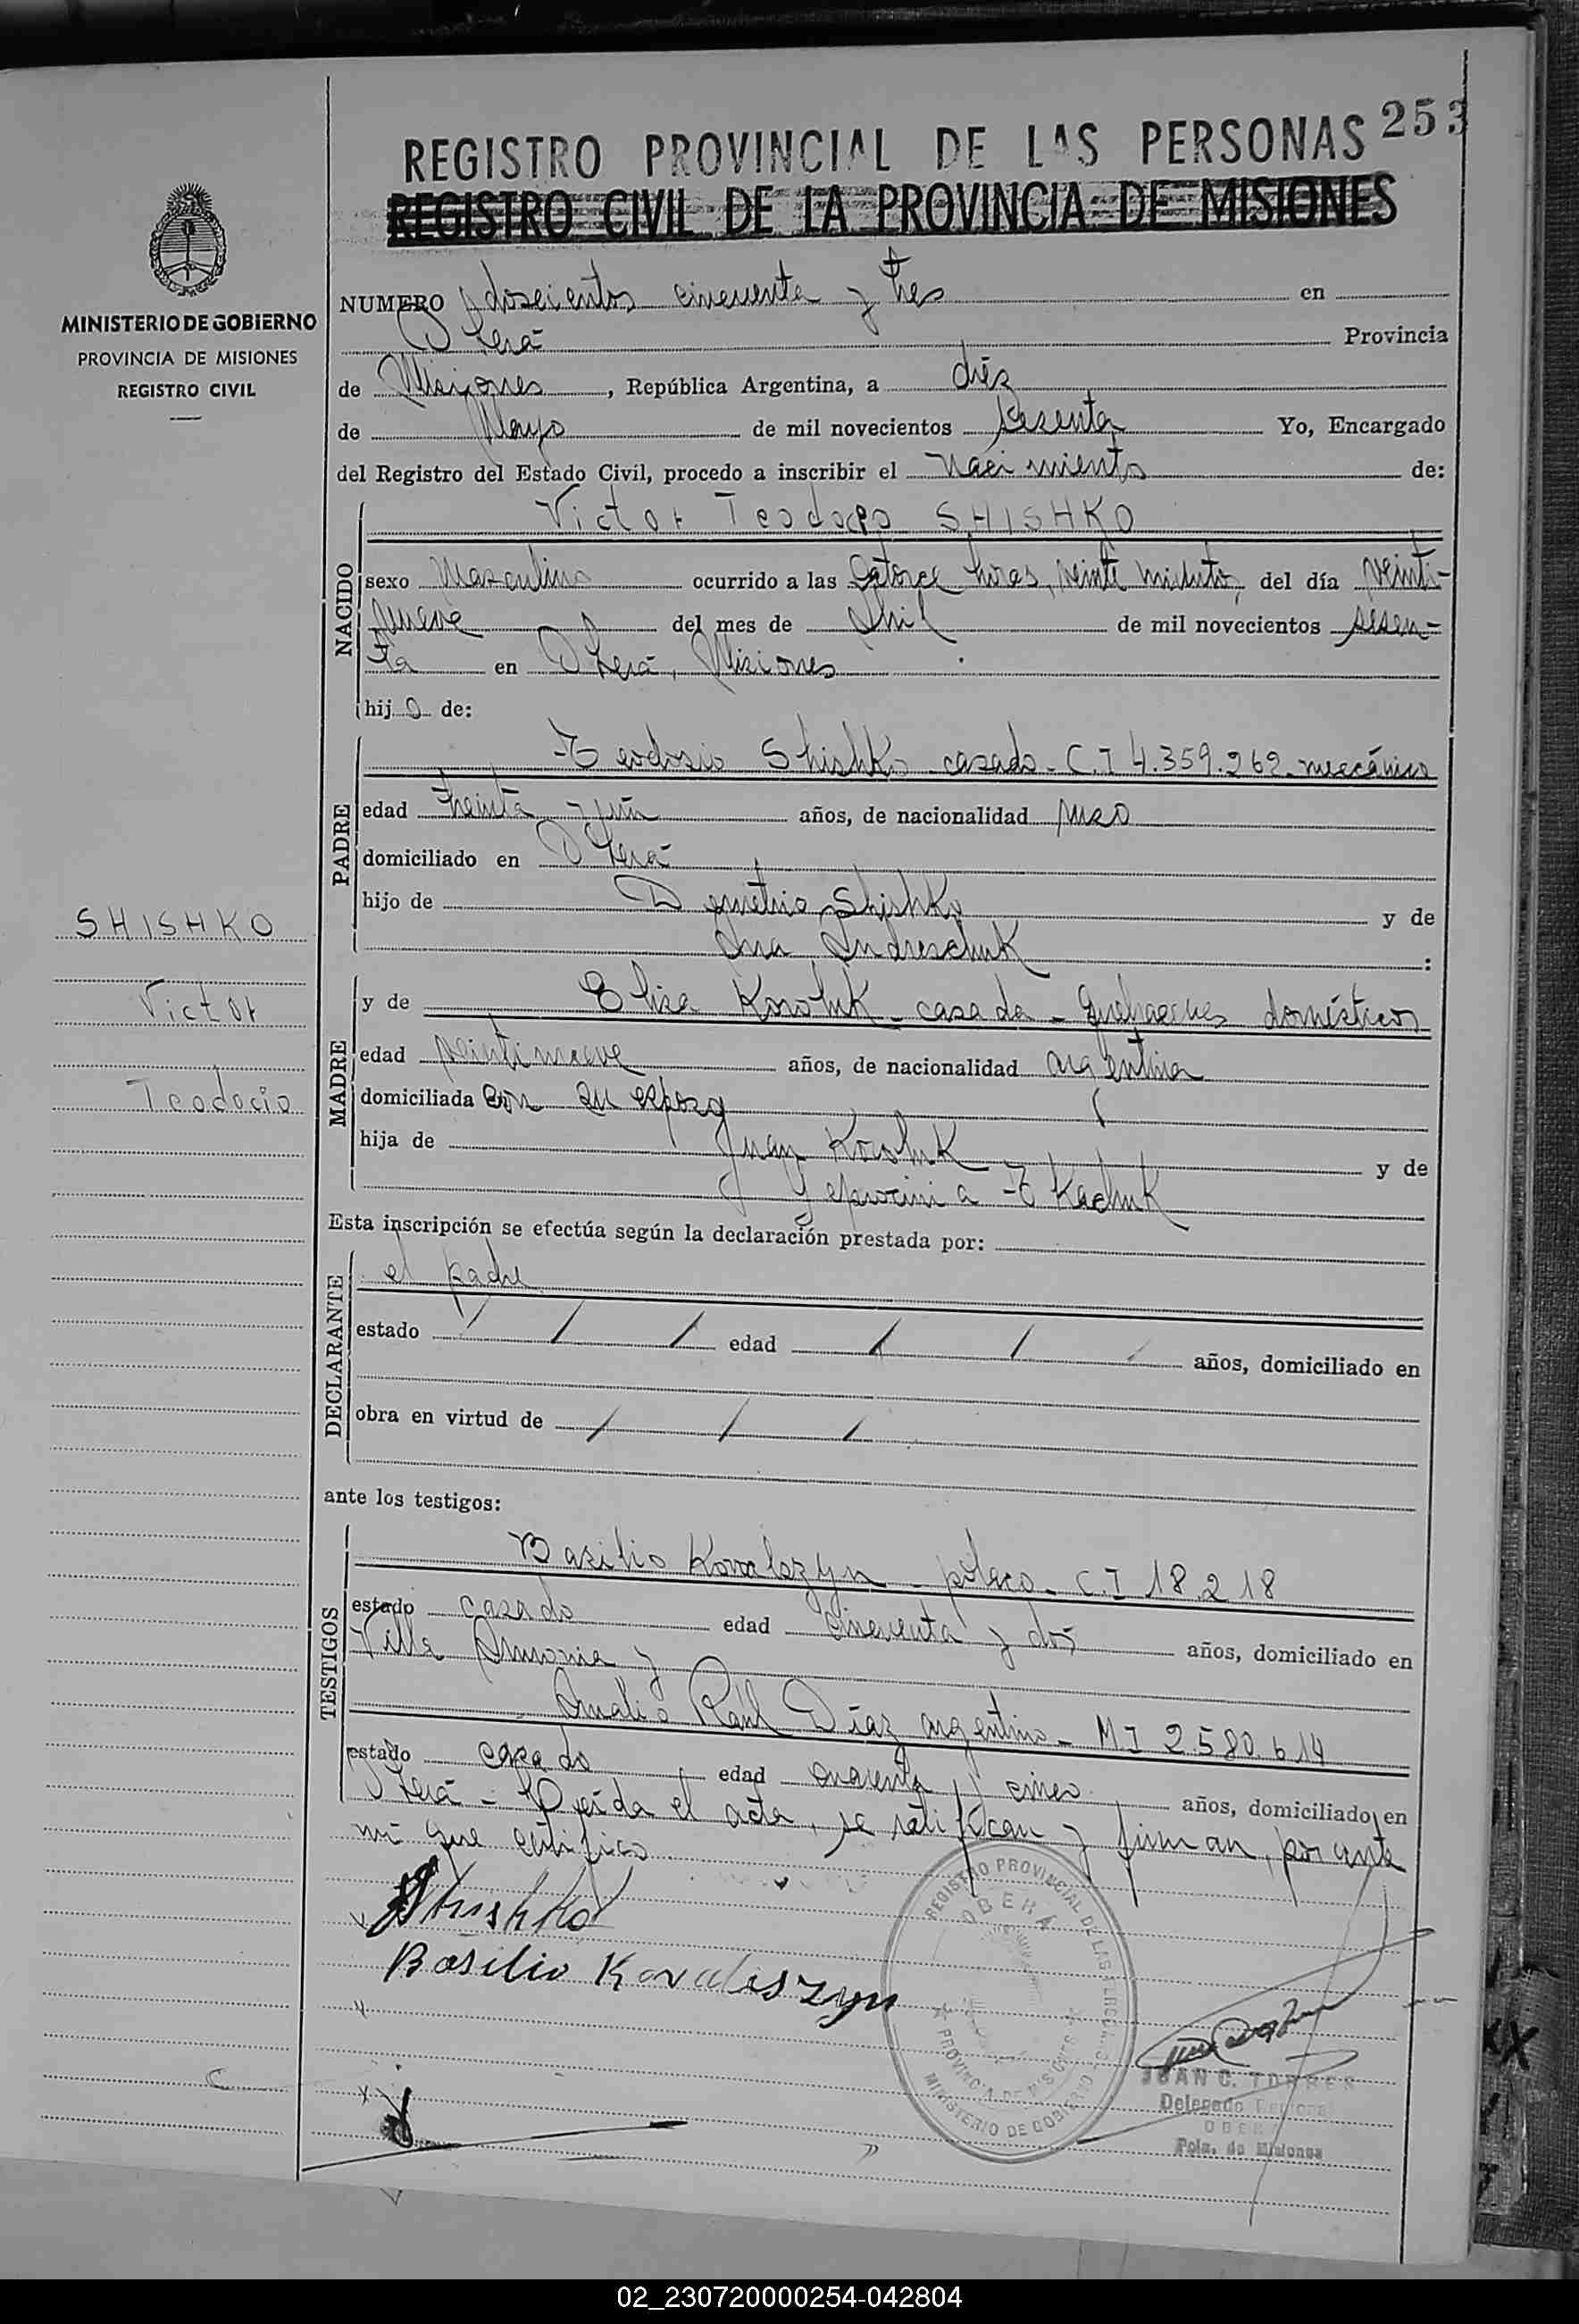 253
REGISTRO PROVINCIAL DE LAS PERSONAS
REGISTRO CIVIL DE LA PROVINCIA DE MISIONES
MINISTERIO DE GOBIERNO
PROVINCIA DE MISIONES
REGISTRO CIVIL
NUMERO doscientos cincuenta y tres en
Oberá Provincia
de Misiones, República Argentina, a diez
de Mayo de mil novecientos sesenta Yo, Encargado
del Registro del Estado Civil, procedo a inscribir el nacimiento de:
NACIDO
Victor Teodocio SHISHKO
sexo Masculino ocurrido a las catorce horas, veinte minutos, del día veinti-
nueve del mes de Abril de mil novecientos sesen-
ta en Oberá, Misiones
hijo de:
PADRE
Teodosio Shishko casado - C.I 4.359.262 - mecánico
edad treinta y un años, de nacionalidad ruso
domiciliado en Oberá
hijo de Demetrio Shishko y de
Ana Andreschuk :
MADRE
y de Elisa Koroluk - casada - quehaceres domésticos
edad veintinueve años, de nacionalidad argentina
domiciliada con su esposo
hija de Juan Koroluk y de
Tkachuk
Esta inscripción se efectúa según la declaración prestada por:
DECLARANTE
el padre
estado / / / edad / / / años, domiciliado en
obra en virtud de / / /
ante los testigos:
TESTIGOS
Basilio Kovalszyn - polaco - C.I 18.218
estado casado edad cincuenta y dos años, domiciliado en
Villa Armonia y
Amalio Raúl Díaz argentino - MI 2.580.614
estado casado edad cuarenta y cinco años, domiciliado en
Oberá - Leída el acta, se ratifican y firman, por ante
mi que certifico
Shishko
Basilio Kovaliszyn
SHISHKO
Victor
Teodocio
REGISTRO PROVINCIAL DE LAS PERSONAS
OBERÁ
PROVINCIA DE MISIONES
MINISTERIO DE GOBIERNO
JUAN C. TORRES
Delegado Regional
OBERA
Pcia. de Misiones
02_230720000254-042804